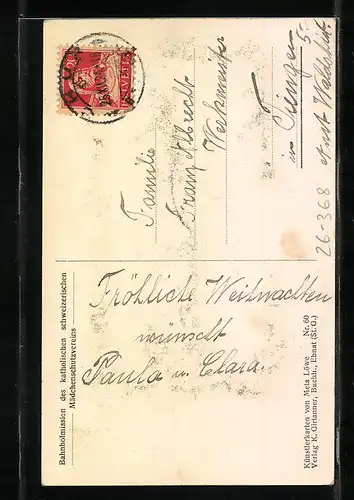 Bahnhofmission des katholischen schweizerischen
Mädchenschutzvereins
Fröhliche Weihnachten
wünscht
Paula u. Clara.
Künstlerkarten von Meta Löwe Nr. 60
Verlag K. Girtanner, Buchh., Ebnat (St. G.)
HELVETIA
Familie
Franz Albrecht
Werkmeister
in
26-368
5.-